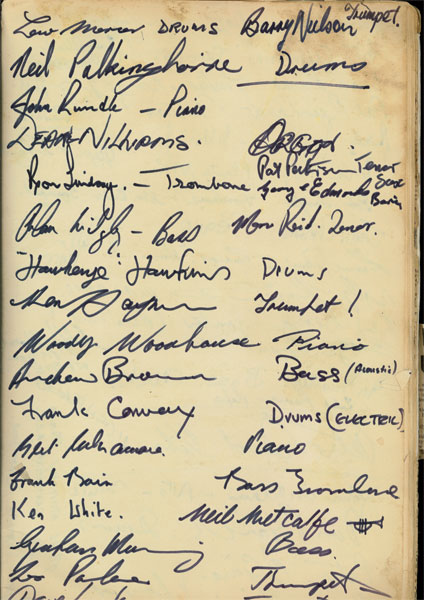 Mercer DRUMS Barry Nielson Trumpet.
Neil Palkinghorne Drums
John Rundle - Piano
ORGAN.
Pat Tenor Sax
Ron Lindsay. - Trombone Garry Edmonds Bari
Alan - Bass Mon Reid. Tenor.
"Hawkeye" Hawkins Drums
Ken Trumpet!
Woody Woodhouse Piano
Andrew Brown Bass (Acoustic)
Frank Conway Drums (ELECTRIC)
Piano
Frank Bain Bass Trombone
Ken White. Neil Metcalfe
Graham Bass.
Trumpet